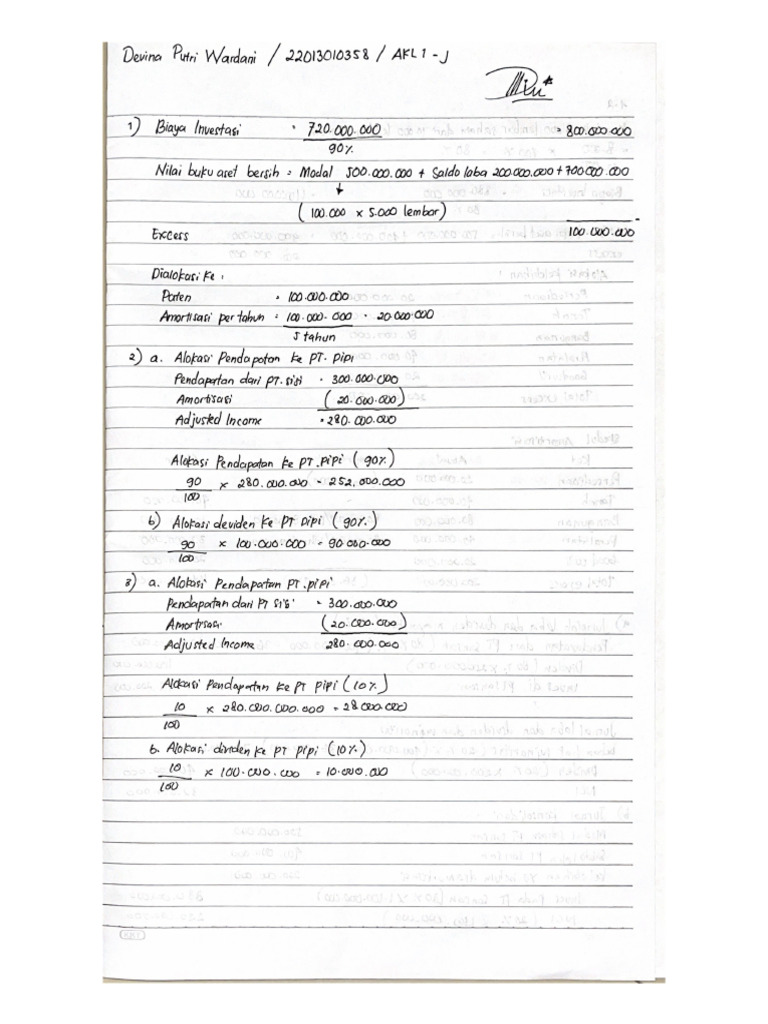 Devina Putri Wardani / 22013010358 / AKL 1 - J
1) Biaya Investasi = 720.000.000 = 800.000.000
90%
Nilai buku aset bersih = Modal 500.000.000 + Saldo laba 200.000.000 + 700.000.000
↓
(100.000 x 5.000 lembar)
Excess 100.000.000
Dialokasi Ke :
Paten = 100.000.000
Amortisasi per tahun = 100.000.000 = 20.000.000
5 tahun
2) a. Alokasi Pendapatan Ke PT. Pipi
Pendapatan dari PT. Sisi = 300.000.000
Amortisasi (20.000.000)
Adjusted Income = 280.000.000
Alokasi Pendapatan Ke PT. Pipi (90%)
90 x 280.000.000 = 252.000.000
100
b) Alokasi deviden Ke PT Pipi (90%)
90 x 100.000.000 = 90.000.000
100
3) a. Alokasi Pendapatan PT. Pipi
Pendapatan dari PT Sisi = 300.000.000
Amortisasi (20.000.000)
Adjusted Income 280.000.000
Alokasi Pendapatan Ke PT Pipi (10%)
10 x 280.000.000.000 = 28.000.000
100
b. Alokasi dividen Ke PT Pipi (10%)
10 x 100.000.000 = 10.000.000
100